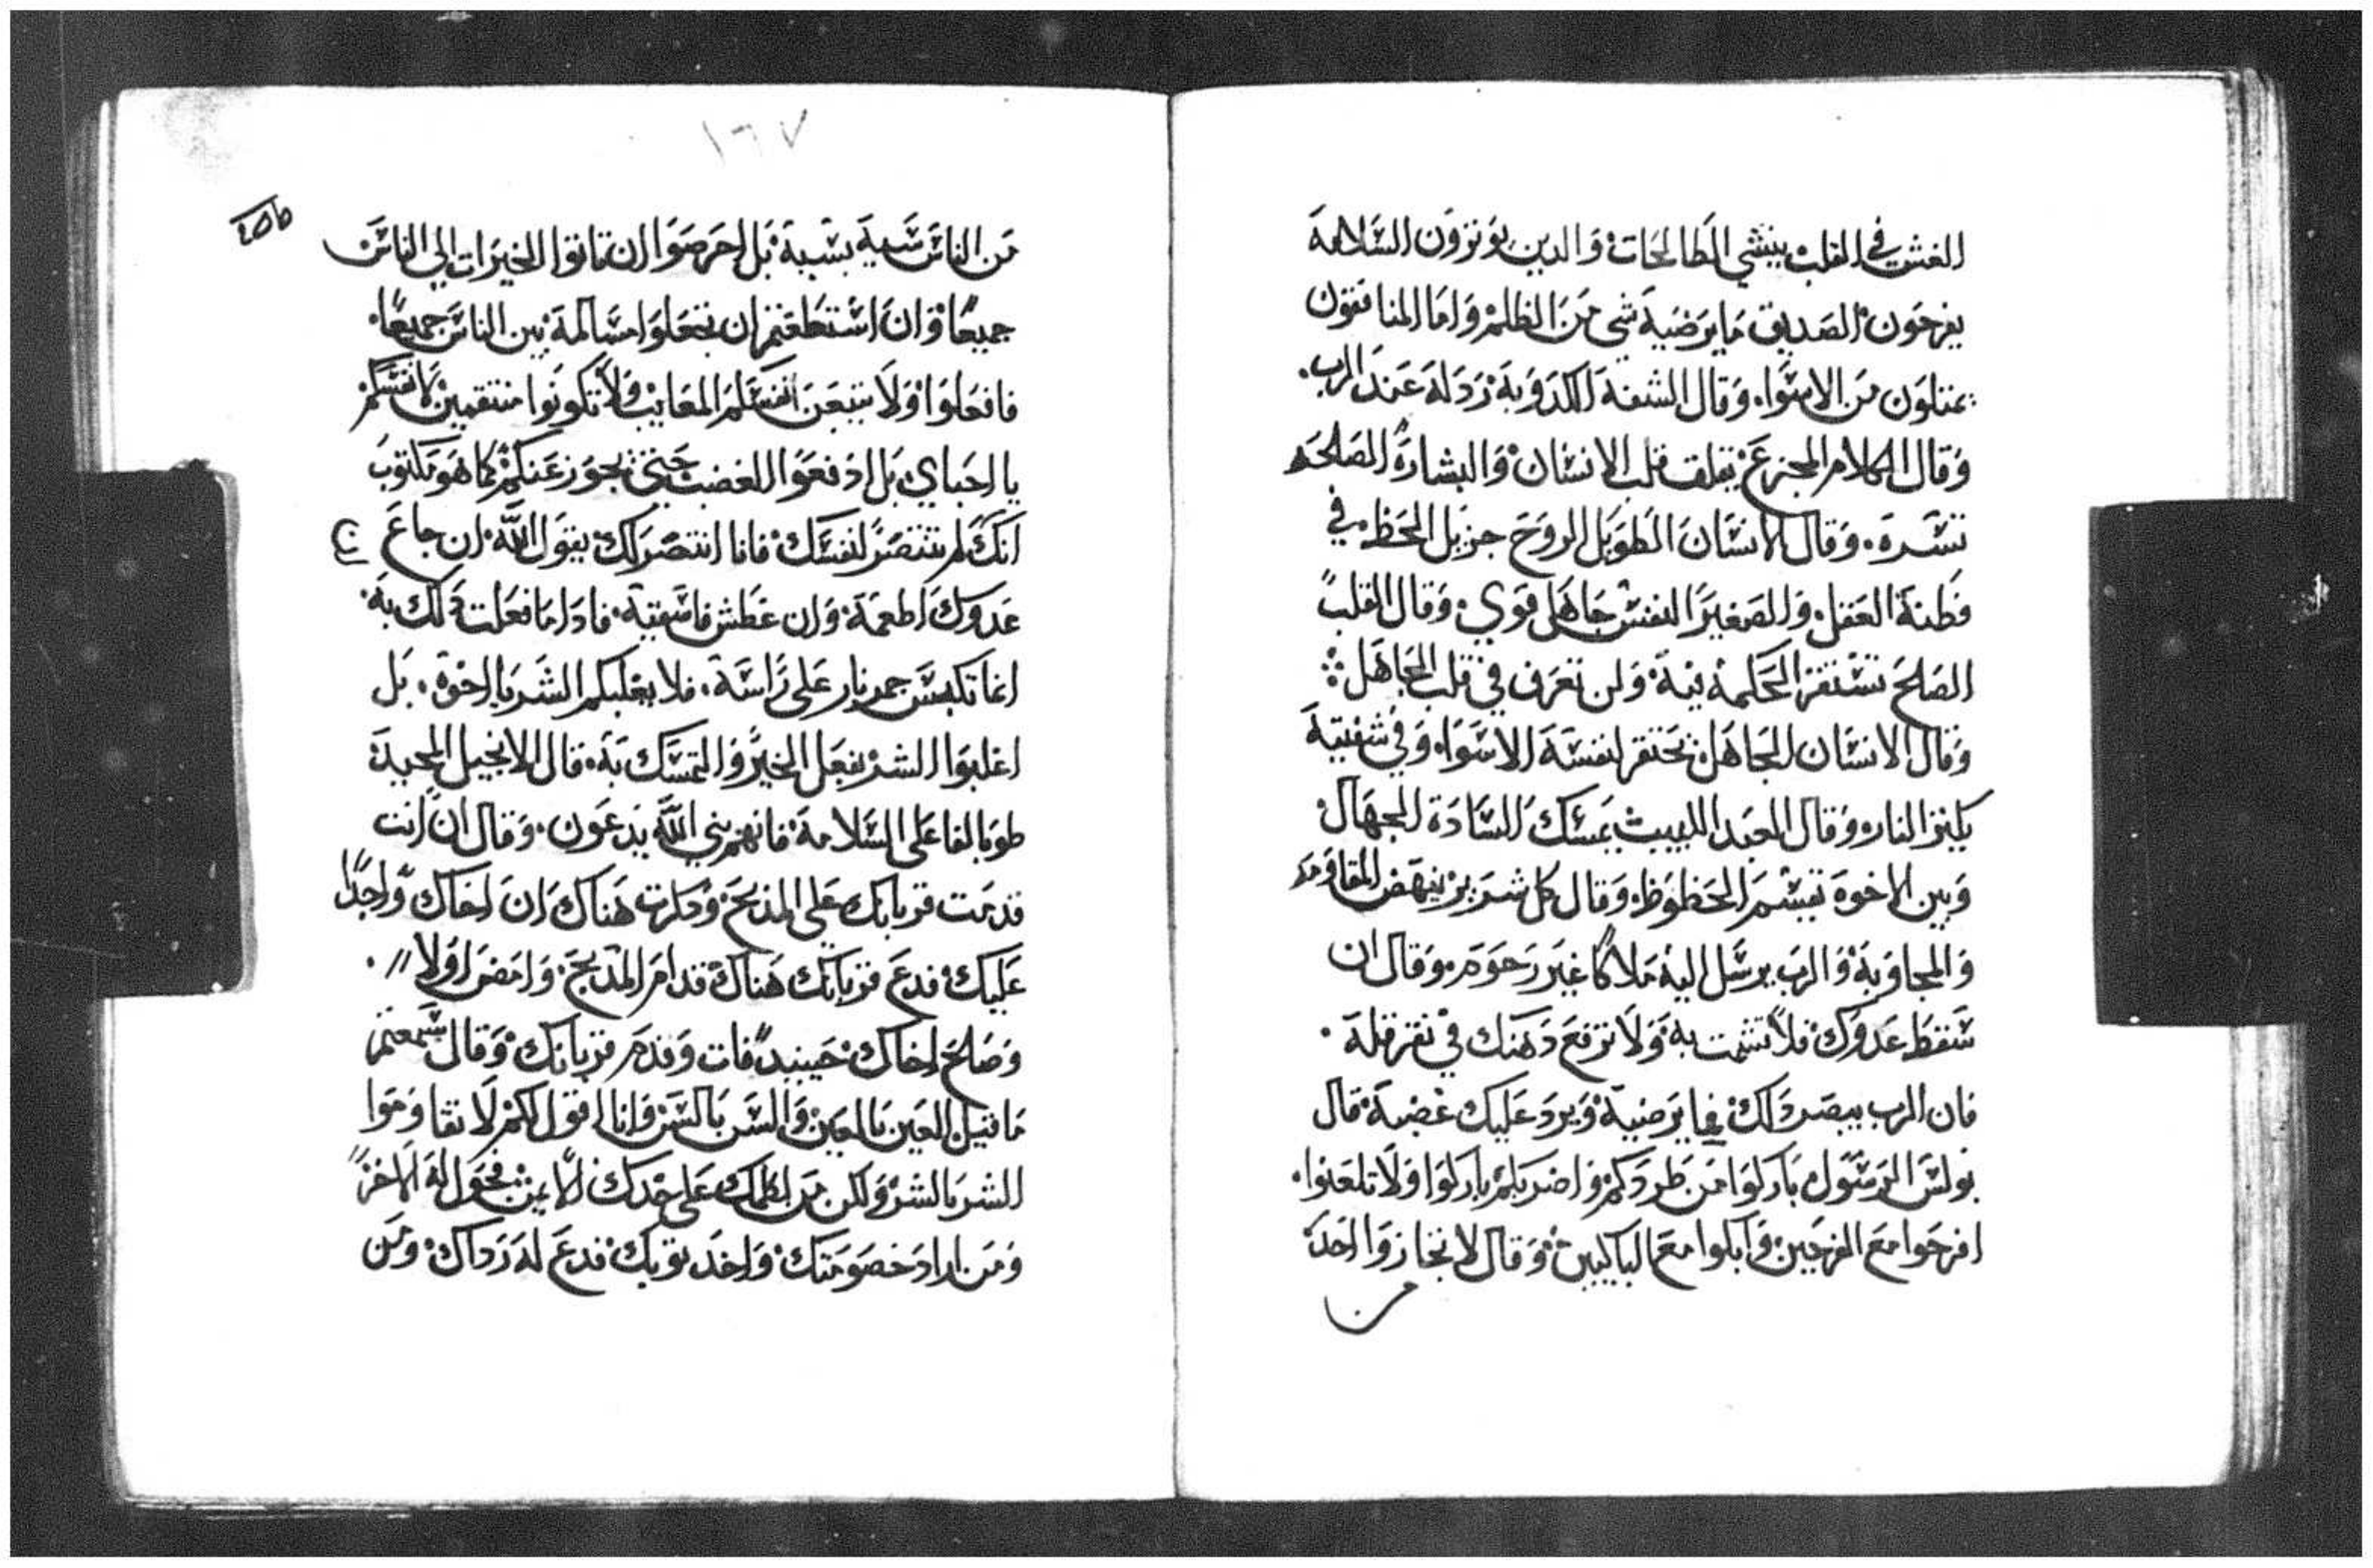 الغش في القلب ينشي الطالحات والدين يوتزون السلامة
يفرحون الصديق ما يرضية شي من الظلم واما المنافقون
يمتلون من الاسوا وقال الشفة الكدوبة زدلة عند الرب
وقال الكلام المجزع يقلق قلب الانسان والبشارة الصلحه
تسره وقال الانسان الطويل الروح جزيل الحظ في
فطنة العقل والصغير النفس جاهل قوي وقال القلب
الصلح تستقر الحكمة فية ولن تعرف في قلب الجاهل
وقال الانسان الجاهل تحتقر لنفسة الاسوا وفي شفتية
يكنز النار وقال العبد اللبيب يمسك السادة الجهال
وبين الاخوة تقسم الحظوظ وقال كل شرير ينهض المقاومه
والمجاوبة والرب يرسل الية ملاكا غير رحوم وقال ان
سقط عدوك فلا تشمت به ولا ترفع دهنك في تقرقلة
فان الرب يبصر دلك فما يرضية ويرد علىك غضبة قال
بولس الرسول باركوا من طردكم واضر بكم باركوا ولا تلعنوا
افرحوا مع الفرحين وابكوا مع الباكيين وقال لا تجازوا احد
من
١٦٧
من الناس سية بسية بل احرصوا ان تاتوا الخيرات الي الناس
جميعا وان استطعتم ان تفعلوا مسالمة بين الناس جميعا
فافعلوا ولا تتبعن انفسكم المعايب ولا تكونوا منتقمين لانفسكم
يا احباي بل ادفعوا الغضب حتي يجوز عنكم كما هو مكتوب
انك لم تنتصر لنفسك فانا انتصر لك يقول الله ان جاع
عدوك اطعمة وان عطش فاسقية فادا ما فعلت دلك به
انما تكبس جمر نار على راسة فلا يغلبكم الشر يا اخوة بل
اغلبوا الشر بفعل الخير والتمسك به قال الانجيل المجيد
طوبا لفاعلى السلامة فانهم بني الله يدعون وقال ان انت
قدمت قربانك على المذبح ودكرت هناك ان اخاك واجدا
عليك فدع قربانك هناك قدام المدبح وامض اولا
وصلح اخاك حينيد فات وقدم قربانك وقال سمعتم
ما قيل العين بالعين والسن بالسن وانا اقول لكم لا تقاوموا
الشر بالشر ولكن من لطمك على خدك الايمن فحول له الاخر
ومن اراد خصومتك واخد ثوبك فدع له رداك ومن